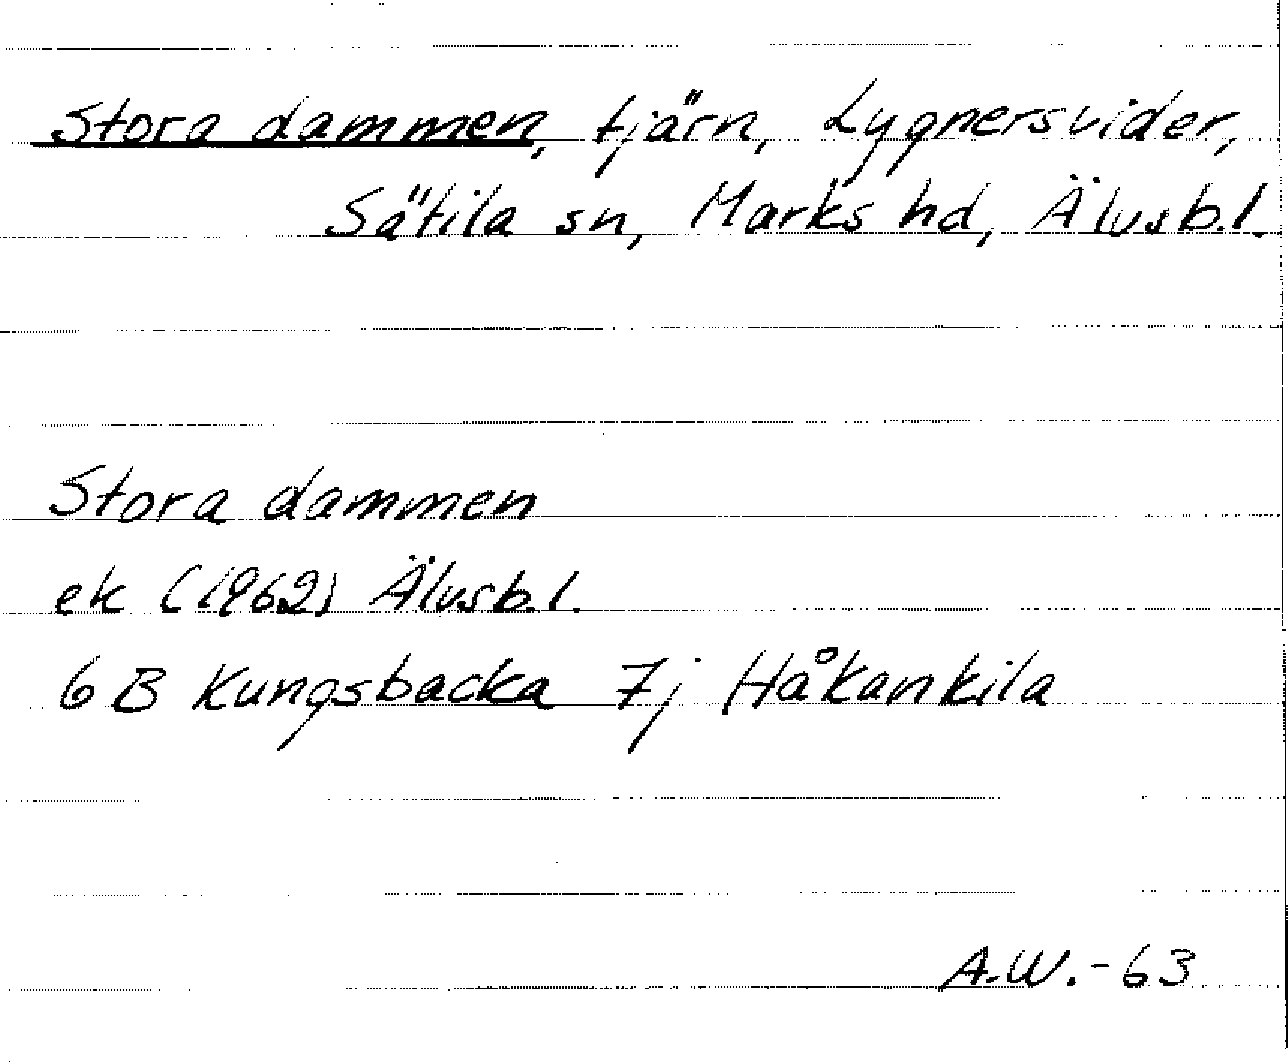 Stora dammen, tjärn, Lygnersvider,
Sätila sn, Marks hd, Älvsb.l.
Stora dammen
ek (1962) Älvsb.l.
6 B Kungsbacka 7j Håkankila
A.W.-63